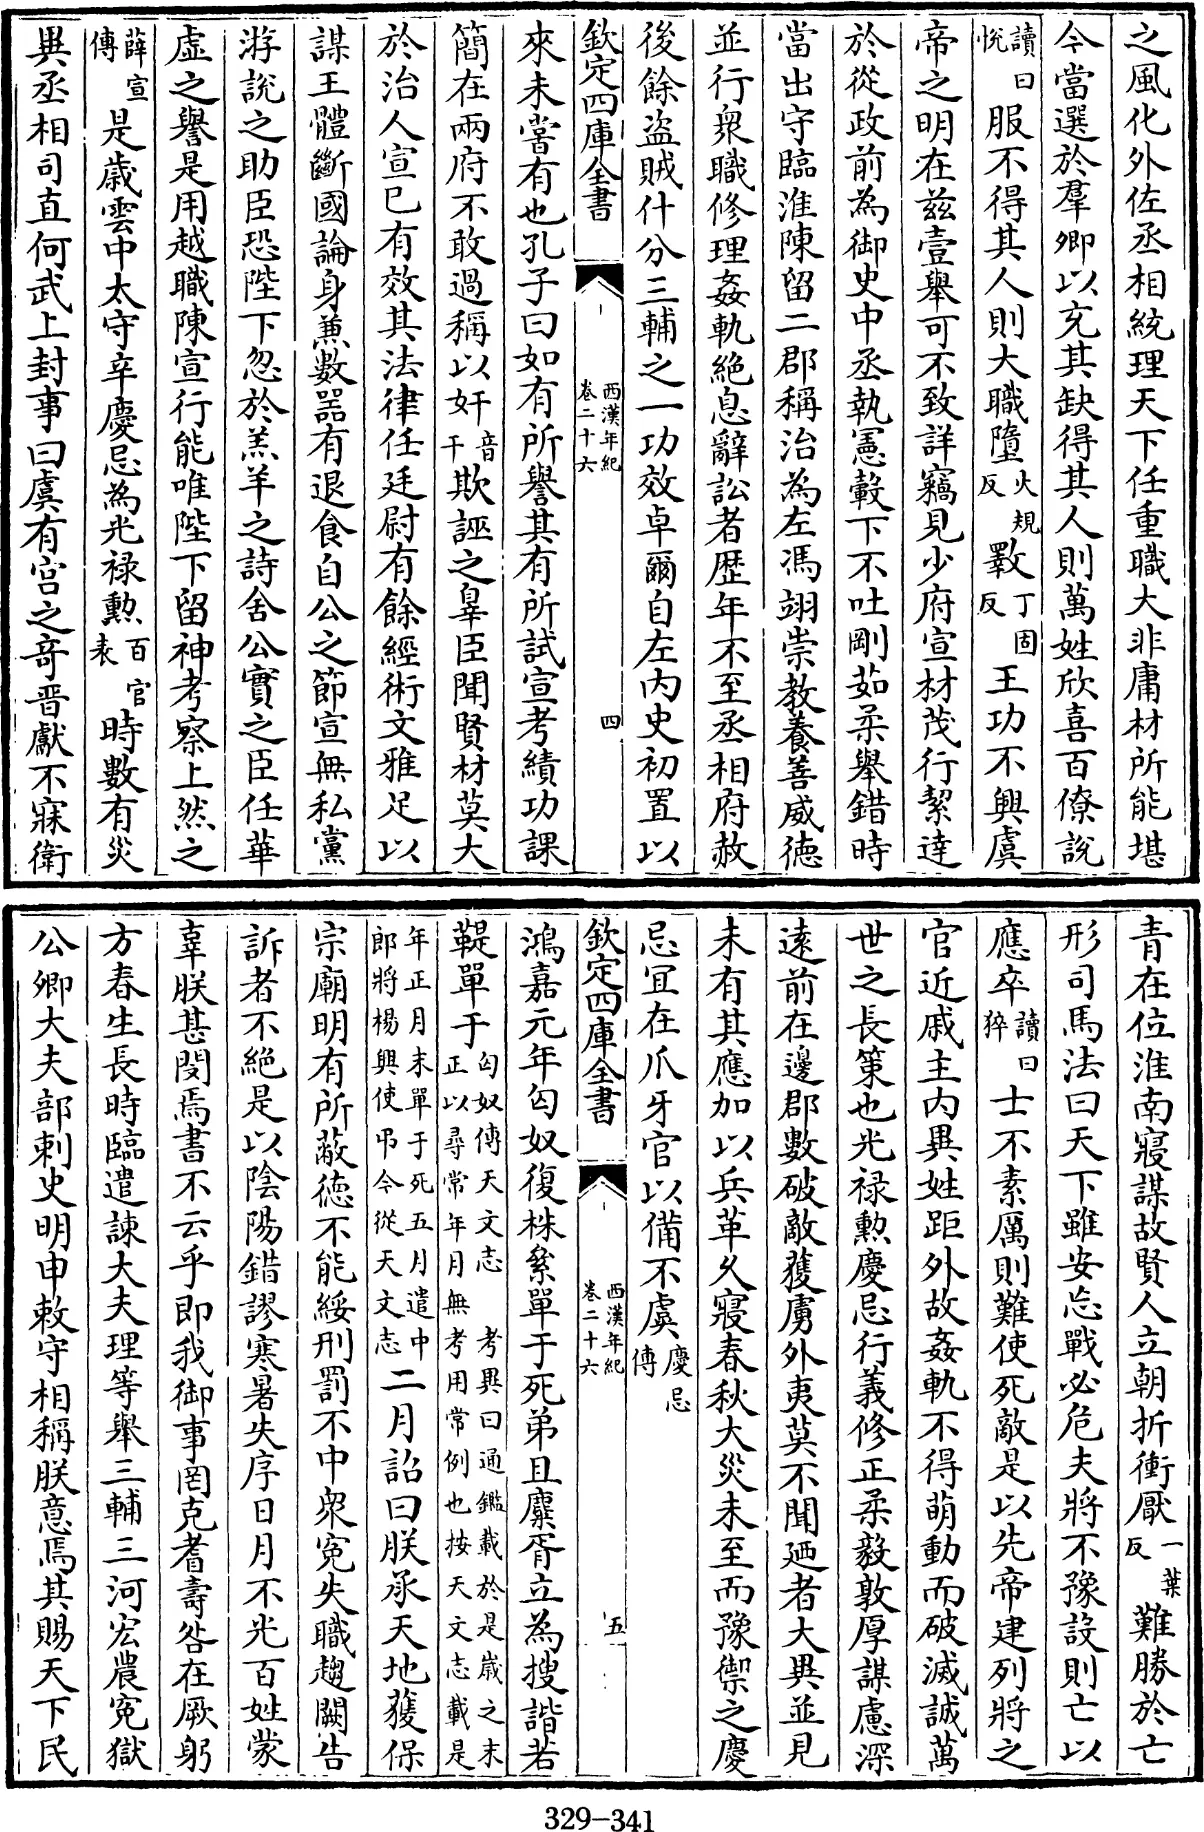 之風化外佐丞相統理天下任重職大非庸材所能堪
今當選於羣卿以充其缺得其人則萬姓欣喜百僚說
讀曰悅服不得其人則大職墮火規反斁丁固反王功不興虞
帝之明在兹壹舉可不致詳竊見少府宣材茂行絜達
於從政前為御史中丞執憲轂下不吐剛茹柔舉錯時
當出守臨淮陳留二郡稱治為左馮翊崇教養善威徳
並行衆職修理姦軌絶息辭訟者歴年不至丞相府赦
後餘盗賊什分三輔之一功效卓爾自左内史初置以
欽定四庫全書
西漢年紀
卷二十六
四
來未嘗有也孔子曰如有所譽其有所試宣考績功課
簡在兩府不敢過稱以奸音干欺誣之辠臣聞賢材莫大
於治人宣已有效其法律任廷尉有餘經術文雅足以
謀王體斷國論身兼數器有退食自公之節宣無私黨
游說之助臣恐陛下忽於羔羊之詩舍公實之臣任華
虚之譽是用越職陳宣行能唯陛下留神考察上然之
薛宣傳是歳雲中太守辛慶忌為光禄勲百官表時數有災
異丞相司直何武上封事曰虞有宫之奇晋獻不寐衛
青在位淮南寢謀故賢人立朝折衝厭一葉反難勝於亡
形司馬法曰天下雖安忘戰必危夫將不豫設則亡以
應卒讀曰猝士不素厲則難使死敵是以先帝建列將之
官近戚主内異姓距外故姦軌不得萌動而破滅誠萬
世之長策也光禄勲慶忌行義修正柔毅敦厚謀慮深
遠前在邊郡數破敵獲虜外夷莫不聞廼者大異並見
未有其應加以兵革久寢春秋大災未至而豫禦之慶
忌宜在爪牙官以備不虞慶忌傳
欽定四庫全書
西漢年紀
卷二十六
五
鴻嘉元年匈奴復株絫單于死弟且麋胥立為搜諧若
鞮單于匈奴傳天文志 考異曰通鑑載於是嵗之末正以尋常年月無考用常例也按天文志載是
年正月末單于死五月遣中郎將楊興使弔今從天文志二月詔曰朕承天地獲保
宗廟明有所蔽徳不能綏刑罰不中衆寃失職趨闕告
訴者不絶是以陰陽錯謬寒暑失序日月不光百姓蒙
辜朕甚閔焉書不云乎即我御事罔克耆壽咎在厥躬
方春生長時臨遣諫大夫理等舉三輔三河宏農寃獄
公卿大夫部刺史明申敕守相稱朕意焉其賜天下民
329-341